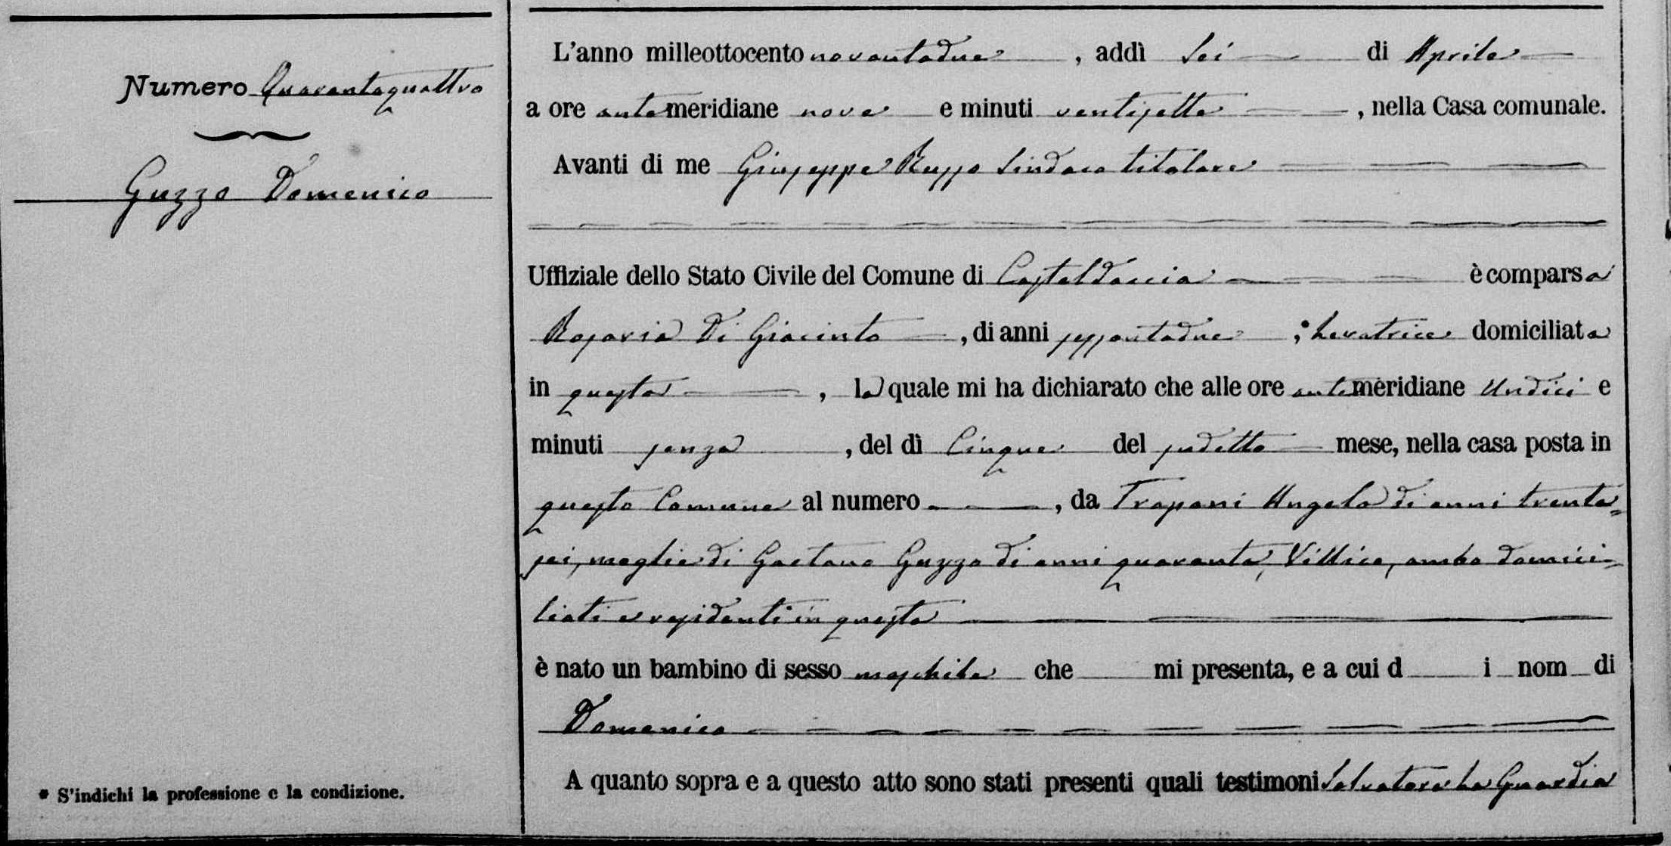 Numero Quarantaquattro
Guzzo Domenico
* S'indichi la professione e la condizione.
L'anno milleottocento novantadue, addì Sei di Aprile
a ore antemeridiane nove e minuti ventisette, nella Casa comunale.
Avanti di me Giuseppe Russo Sindaco titolare
Uffiziale dello Stato Civile del Comune di Casteldaccia è comparsa
Rosaria Di Giacinto, di anni sessantadue, * Levatrice domiciliata
in questa, la quale mi ha dichiarato che alle ore antemeridiane Undici e
minuti senza, del dì Cinque del sudetto mese, nella casa posta in
questo Comune al numero, da Trapani Angela di anni trenta=
sei, moglie di Gaetano Guzzo di anni quaranta, Villico, ambo domici=
liati e residenti in questa
è nato un bambino di sesso maschile che mi presenta, e a cui d i nom di
Domenico
A quanto sopra e a questo atto sono stati presenti quali testimoni Salvatore La Guardia